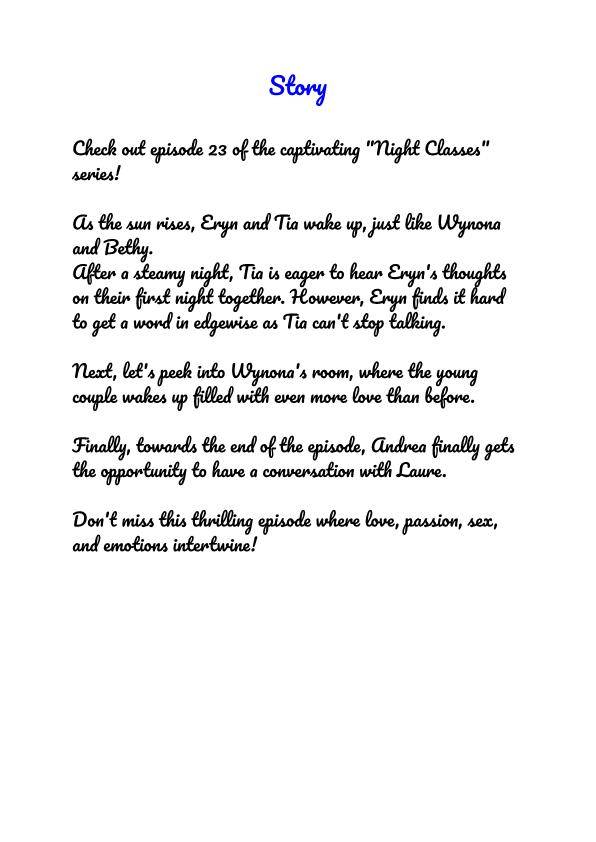 Story
Check out episode 23 of the captivating "Night Classes"
series!
As the sun rises, Eryn and Tia wake up, just like Wynona
and Bethy.
After a steamy night, Tia is eager to hear Eryn's thoughts
on their first night together. However, Eryn finds it hard
to get a word in edgewise as Tia can't stop talking.
Next, let's peek into Wynona's room, where the young
couple wakes up filled with even more love than before.
Finally, towards the end of the episode, Andrea finally gets
the opportunity to have a conversation with Laure.
Don't miss this thrilling episode where love, passion, sex,
and emotions intertwine!